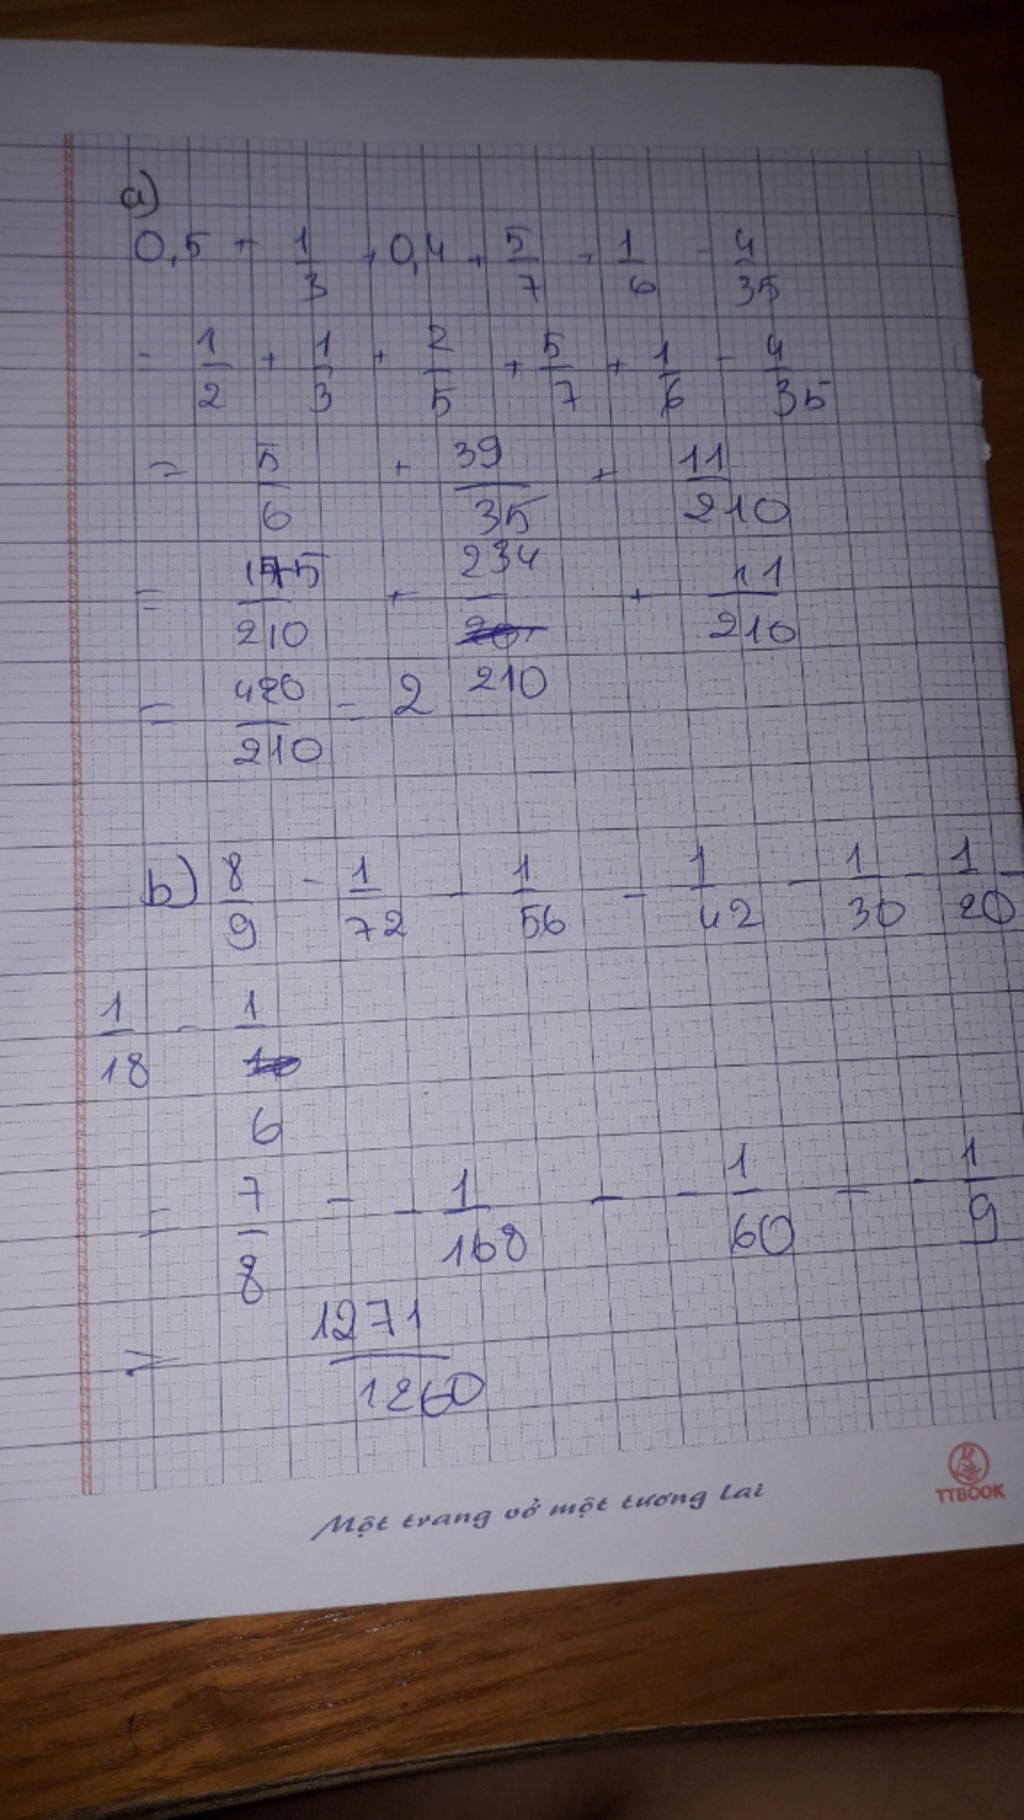 a)
0,5 + 1/3 + 0,4 + 5/7 + 1/6 - 4/35
= 1/2 + 1/3 + 2/5 + 5/7 + 1/6 - 4/35
= 5/6 + 39/35 + 11/210
= 175/210 + 234/210 + 11/210
= 420/210 = 2
b) 8/9 - 1/72 - 1/56 - 1/42 - 1/30 - 1/20 -
1/18 - 1/6
= 7/8 - - 1/168 - - 1/60 - - 1/9
= 1271/1260
Một trang vở một tương lai
TTBOOK